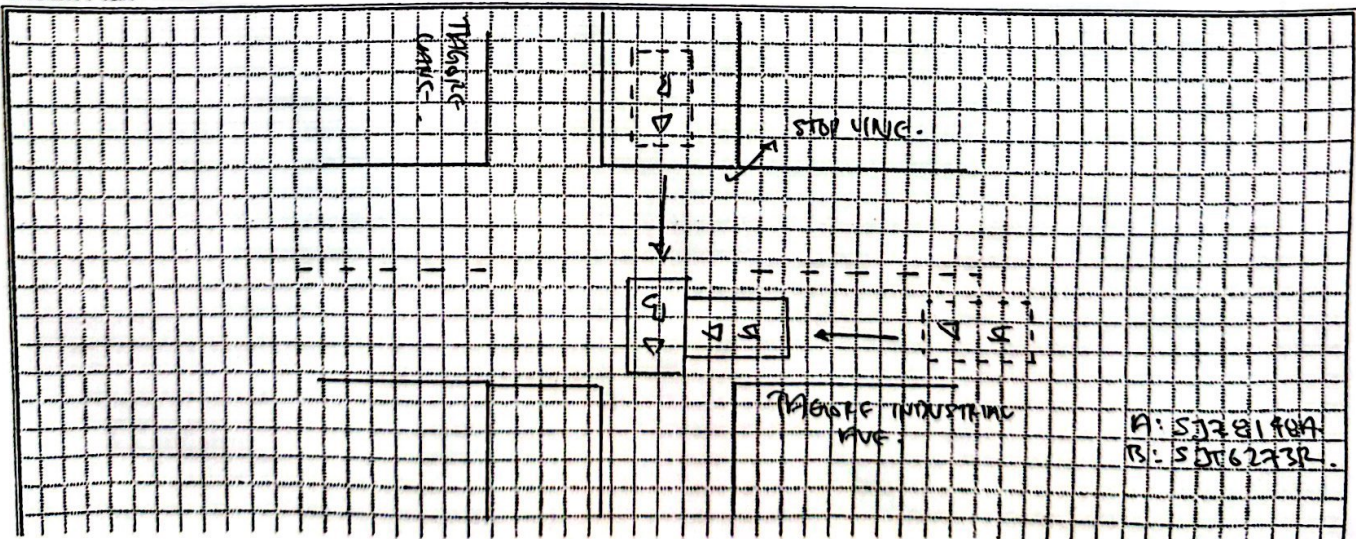 TAGORE
LANE.
B
STOP LINE.
B
A
A
TAGORE INDUSTRIAL
AVE.
A: SJZ8148A
B: SJT6273R.